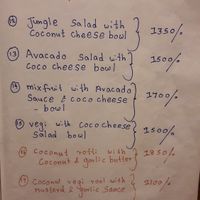 ⑫ Jungle Salad with
Coconut cheese bowl } 1350/-
⑬ Avacado salad with
Coco cheese bowl } 1500/-
⑭ mixfruit with Avacado
Sauce & coco cheese
- bowl } 1700/-
⑮ vegi with coco cheese
Salad bowl } 1500/-
⑯ coconut rotti with
Coconut & garlic butter } 1850/-
⑰ Coconut vegi rool with
mustard & garlic sauce } 2100/-